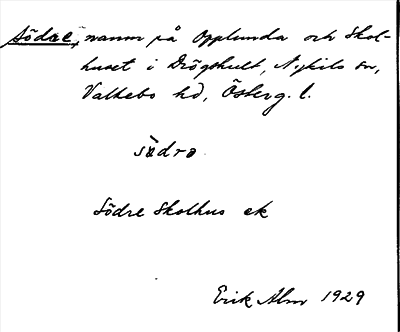 Södre, namn på Opplunda och Skol-
huset i Drögshult, Nykils sn,
Valkebo hd, Österg. l.
södra
Södre Skolhus ek
Erik Alm 1929